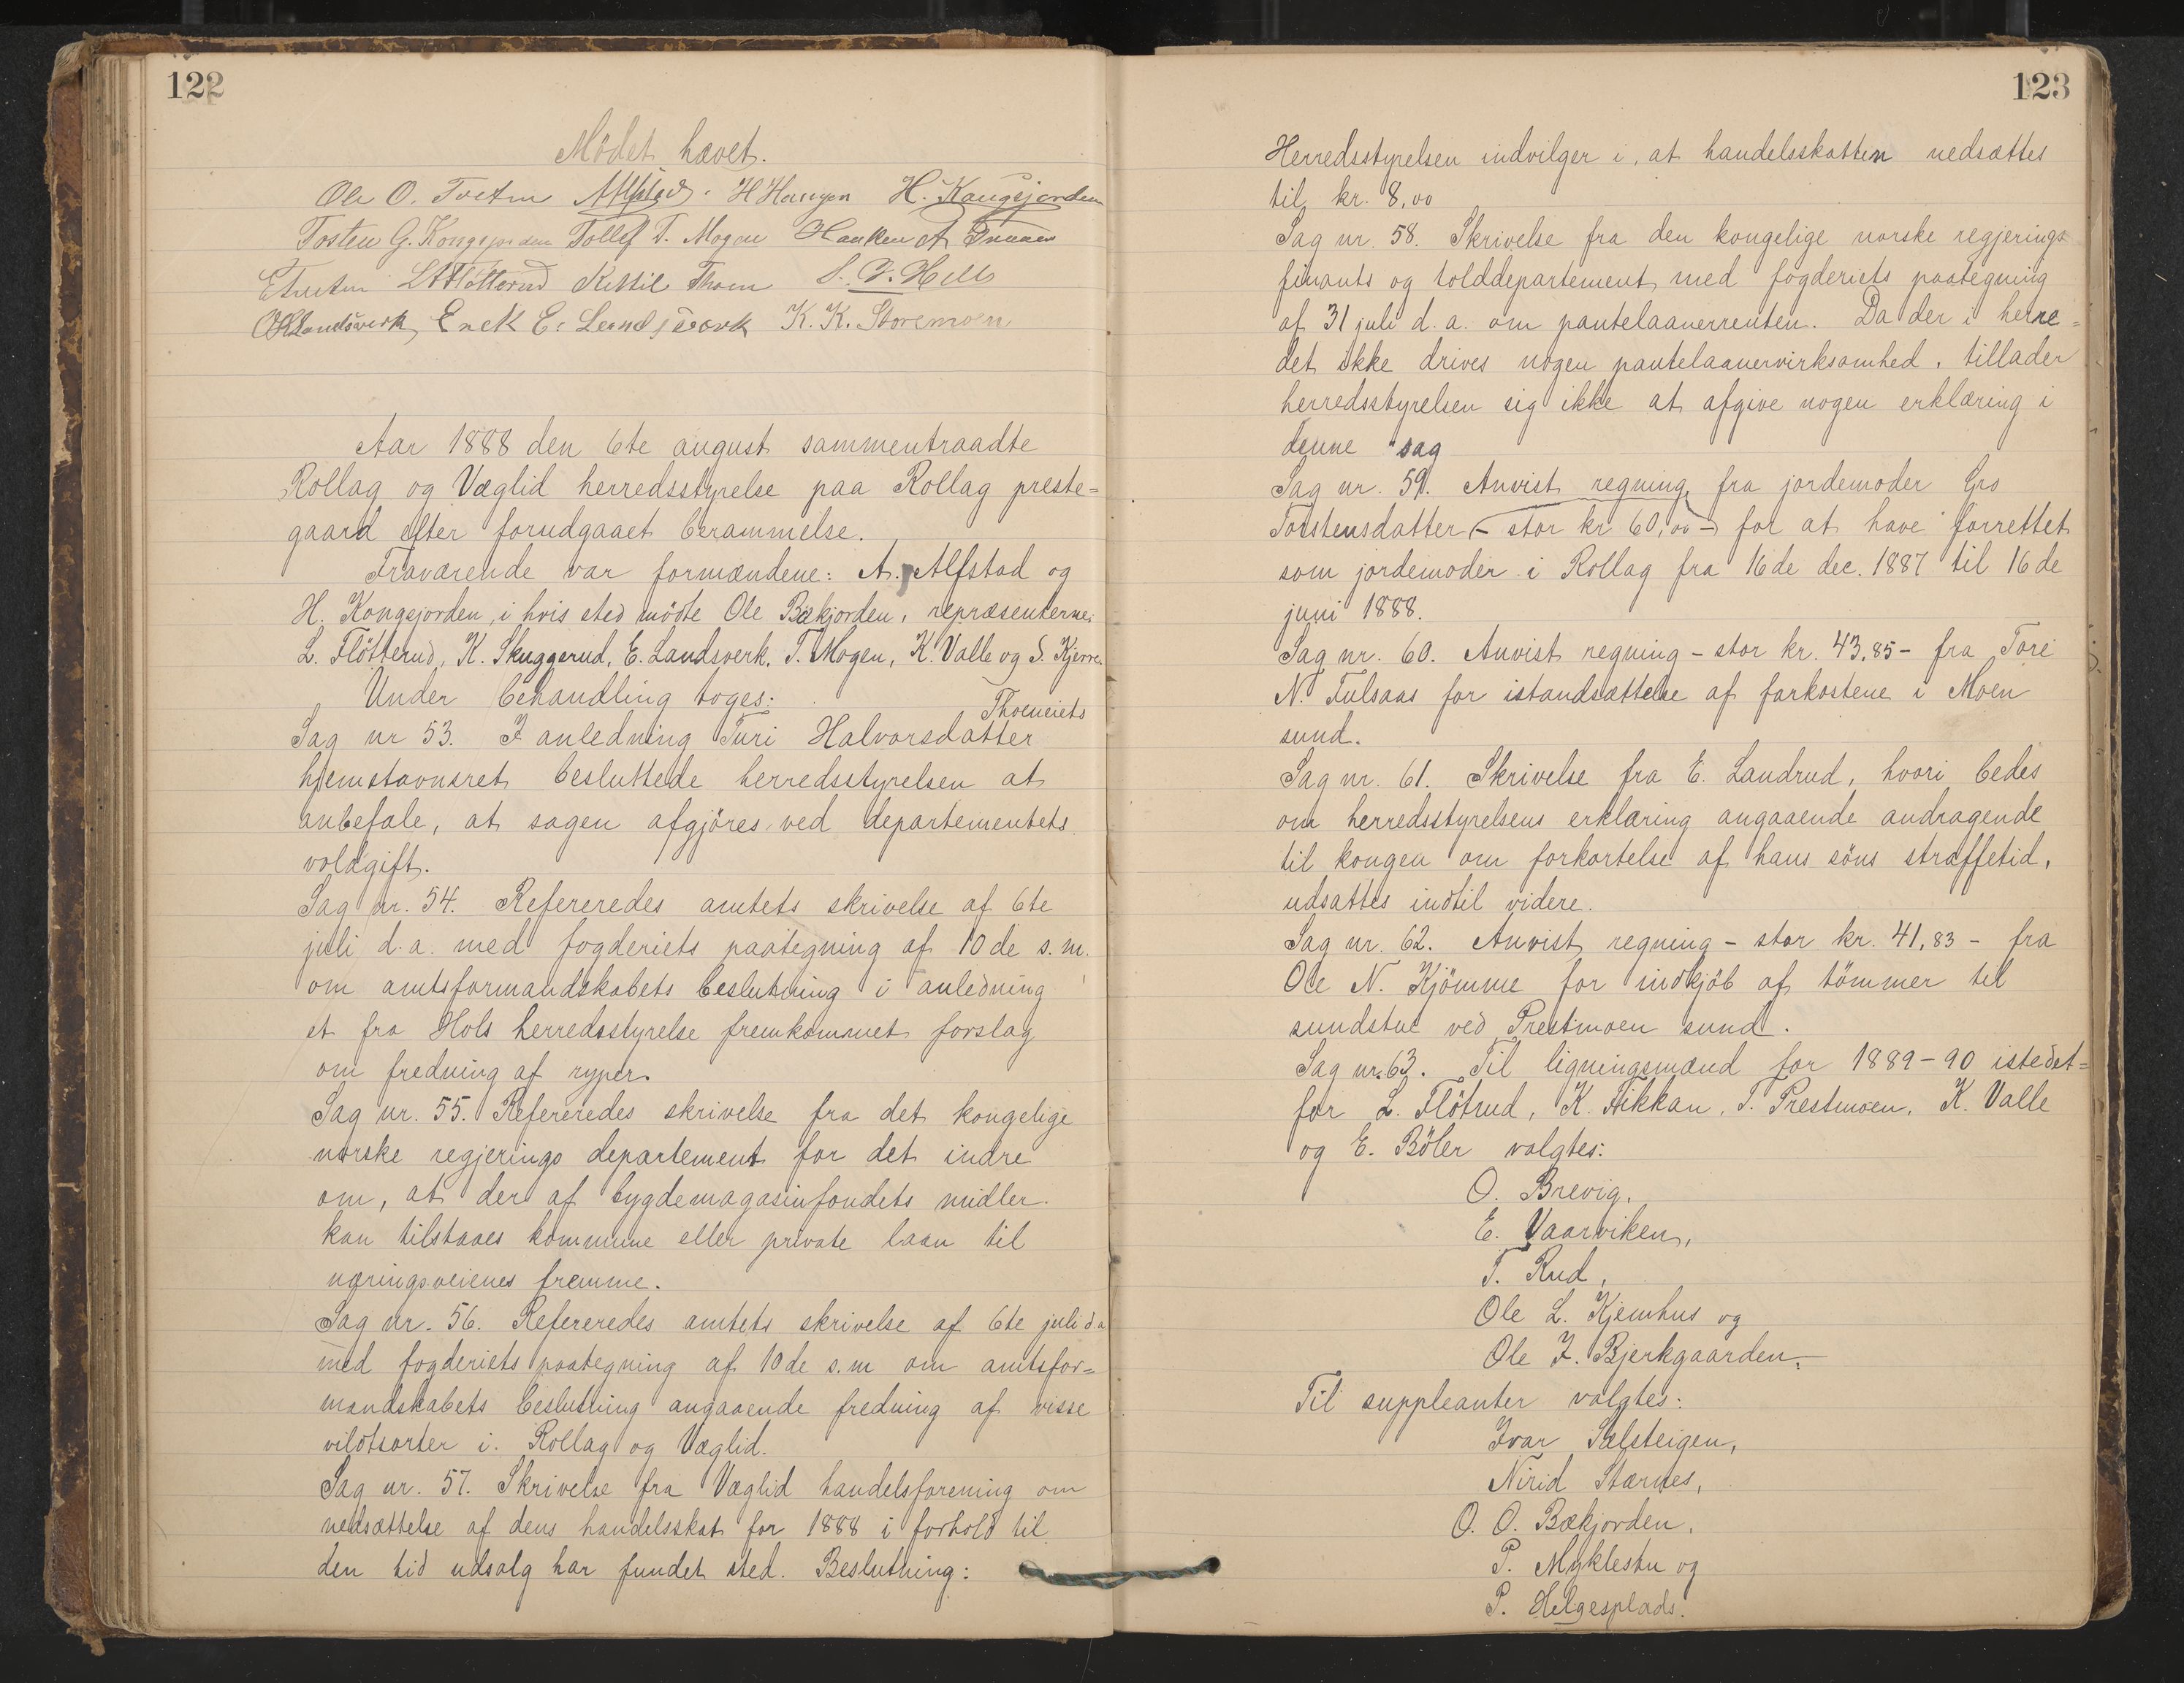 122
Mödet hævet.
Ole O. Tveten AAlfstad. H Haugen H. Kongsjorden
Tosten G. Kongsjorden Tollef T. Mogen Haaken A
LAFlötterud Kittil Thom
OKLandsverk, Enek E. Landsverk K. K. Storemoen
Aar 1888 den 6te august sammentraadte
Rollag og Væglid herredsstyrelse paa Rollag preste=
gaard efter forudgaaet berammelse.
Fraværende var formændene: A. Alfstad og
H. Kongsjorden, i hvis sted mödte Ole Bækjorden, repræsenterne:
L. Flötterud, K. Skuggerud, E. Landsverk, T. Mogen, K. Valle og S. Kjerre.
Under behandling toges:
Thoeneiets
Sag nr 53. I anledning Turi Halvorsdatter
hjemstavnsret besluttede herredsstyrelsen at
anbefale, at sagen afgjöres ved departementets
voldgift.
Sag nr. 54. Refereredes amtets skrivelse af 6te
juli d.a. med fogderiets paategning af 10de s.m.
om amtsformandskabets beslutning i anledning
et fra Hols herredsstyrelse fremkommet forslag
om fredning af ryper.
Sag nr. 55. Refereredes skrivelse fra det kongelige
norske regjerings departement for det indre
om, at der af bygdemagasinfondets midler
kan tilstaaes kommune eller private laan til
næringsveienes fremme.
Sag nr. 56. Refereredes amtets skrivelse af 6te juli d a
med fogderiets paategning af 10de s.m om amtsfor=
mandskabets beslutning angaaende fredning af visse
vildtsorter i. Rollag og Væglid.
Sag nr. 57. Skrivelse fra Væglid handelsforening om
nedsættelse af dens handelsskat for 1888 i forhold til
den tid udsalg har fundet sted. Beslutning:
123
Herredsstyrelsen indvilger i, at handelsskatten nedsættes
til kr. 8,00
Sag nr. 58. Skrivelse fra den kongelige norske regjerings
finants og tolddepartement med fogderiets paategning
af 31 juli d.a. om pantelaanerrenten. Da der i herre=
det ikke drives nogen pantelaanervirksomhed, tillader
herredsstyrelsen sig ikke at afgive nogen erklæring i
denne sag
Sag nr. 59. Anvist regning fra jordemoder Gro
Torstensdatter - stor kr 60,00 - for at have forrettet
som jordemoder i Rollag fra 16de dec. 1887 til 16de
juni 1888.
Sag nr. 60. Anvist regning - stor kr. 43,85 - fra Tore
N. Fulsaas for istandsættelse af farkostene i Moen
sund.
Sag nr. 61. Skrivelse fra E. Landrud, hvori bedes
om herredsstyrelsens erklæring angaaende andragende
til kongen om forkortelse af hans söns straffetid,
udsattes indtil videre.
Sag nr. 62. Anvist regning - stor kr. 41,83 - fra
Ole N. Kjömme for indkjöb af tömmer til
sundstue ved Prestmoen sund.
Sag nr. 63. Til ligningsmænd for 1889-90 istedet=
for L. Flötrud, K. Fikkan, T. Prestmoen, K. Valle
og E. Böler valgtes:
O. Brevig,
E. Vaarviken,
T. Rud,
Ole L. Kjemhus og
Ole J. Bjerkgaarden.
Til suppleanter valgtes:
Ivar Sælsteigen,
Nirid Stærnes,
O. O. Bækjorden,
P. Myklestu og
P. Helgesplads.